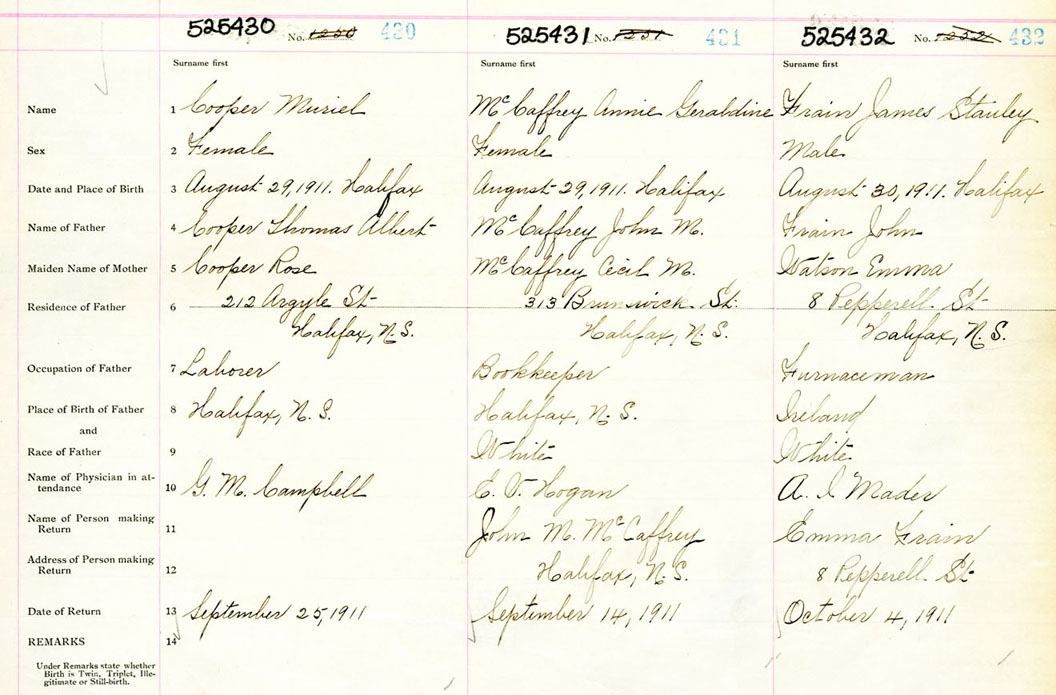 525430 No. 1230 430 525431 No. 1231 431 525432 No. 1232 432
Surname first Surname first Surname first
Name 1 Cooper Muriel McCaffrey Annie Geraldine Frain James Stanley
Sex 2 Female Female Male
Date and Place of Birth 3 August 29, 1911. Halifax August 29, 1911. Halifax August 30, 1911. Halifax
Name of Father 4 Cooper Thomas Albert McCaffrey John M. Frain John
Maiden Name of Mother 5 Cooper Rose McCaffrey Cecil M. Watson Emma
Residence of Father 6 212 Argyle St 313 Brunswick St. 8 Pepperell St
Halifax, N.S. Halifax, N.S. Halifax, N.S.
Occupation of Father 7 Laborer Bookkeeper Furnaceman
Place of Birth of Father 8 Halifax, N.S. Halifax, N.S. Ireland
and
Race of Father 9 White White
Name of Physician in at-
tendance 10 G. M. Campbell E. V. Hogan A. I Mader
Name of Person making
Return 11 John M. McCaffrey Emma Frain
Address of Person making
Return 12 Halifax, N.S. 8 Pepperell St
Date of Return 13 September 25, 1911 September 14, 1911 October 4, 1911
REMARKS 14
Under Remarks state whether
Birth is Twin, Triplet, Ille-
gitimate or Still-birth.